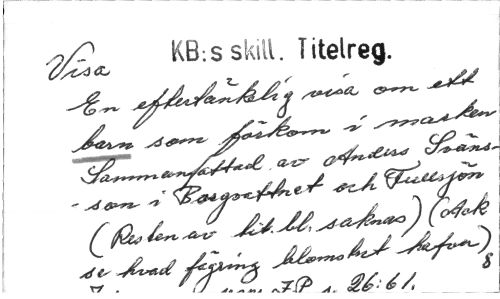 KB:s skill. Titelreg.
Visa
En eftertänklig visa om ett
barn som förkom i marken
Sammanfattad av Anders Sväns-
son i Borgvattnet och Fullsjön
(Resten av tit. bl. saknas) (Ack
se hvad fägring blomstret hafver) 8
s. 26:61.